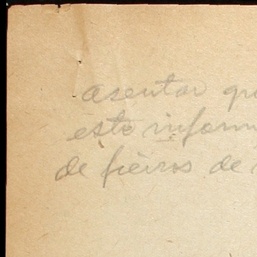 asentar qu
este inform
de fieiros de